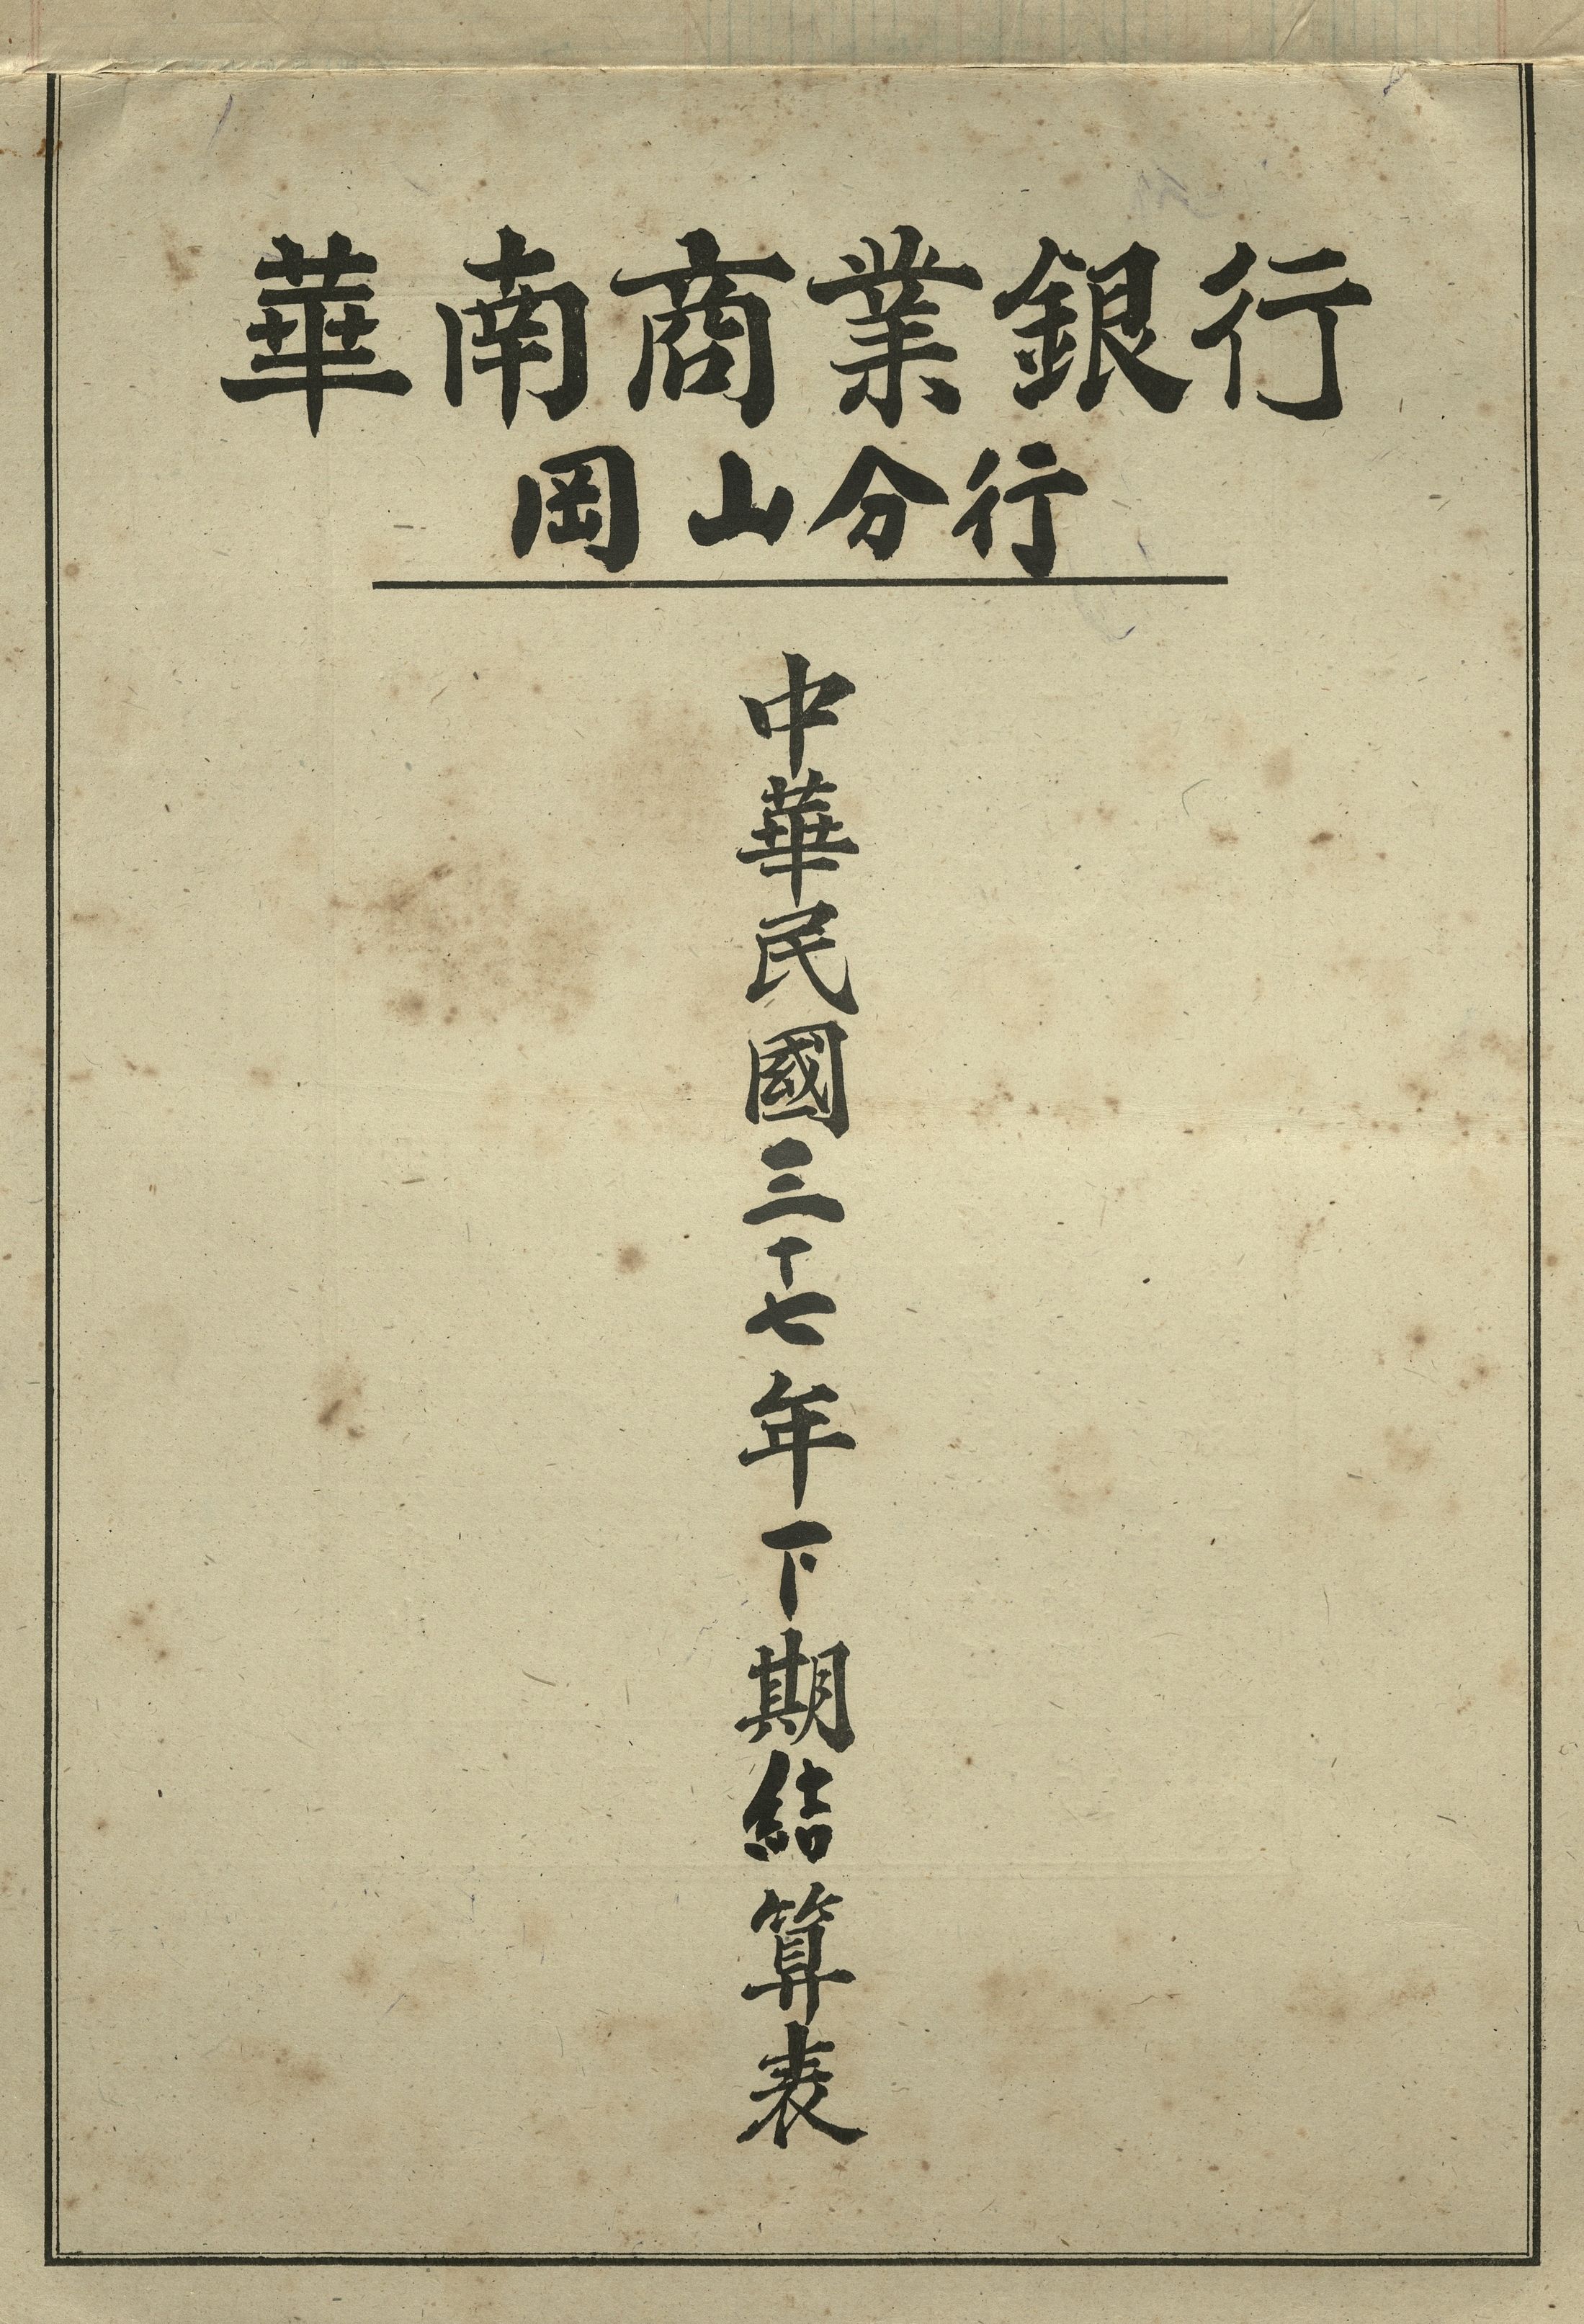 華南商業銀行
岡山分行
中華民國三十七年下期結算表